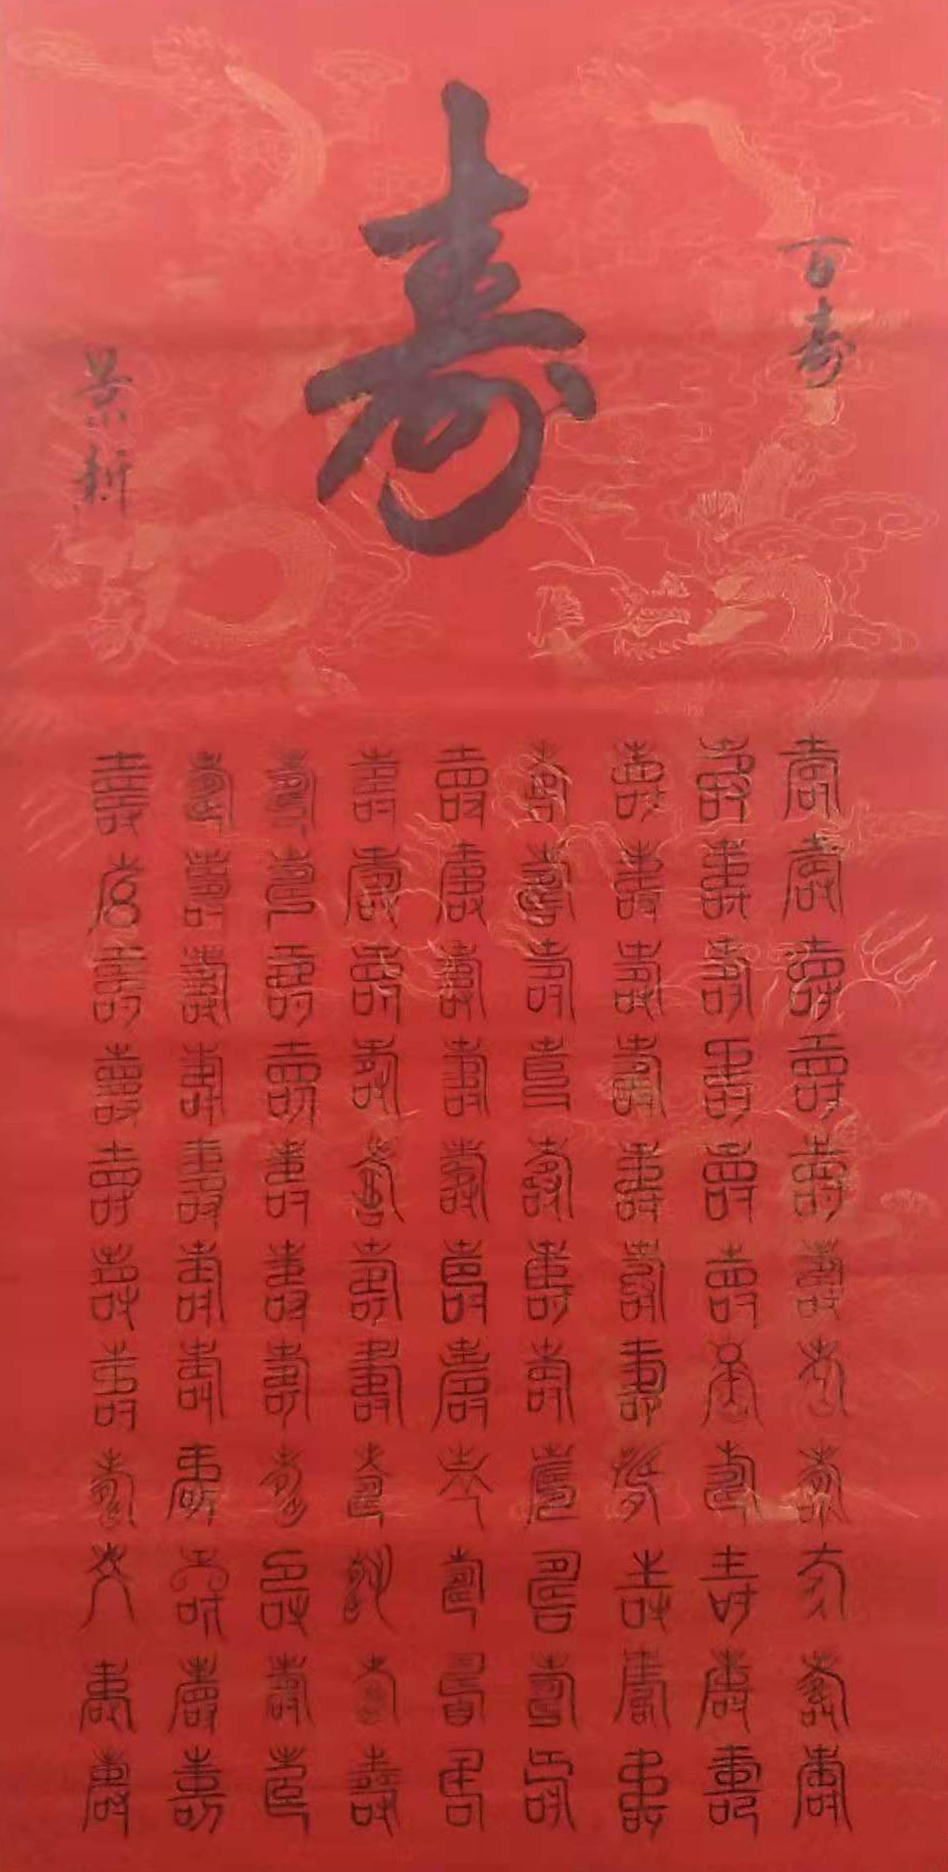 百寿
寿
壽壽壽壽壽壽壽壽壽壽壽
壽壽壽壽壽壽壽壽壽壽壽
壽壽壽壽壽壽壽壽壽壽壽
壽壽壽壽壽壽壽壽壽壽壽
壽壽壽壽壽壽壽壽壽壽壽
壽壽壽壽壽壽壽壽壽壽壽
壽壽壽壽壽壽壽壽壽壽壽
壽壽壽壽壽壽壽壽壽壽壽
壽壽壽壽壽壽壽壽壽壽壽